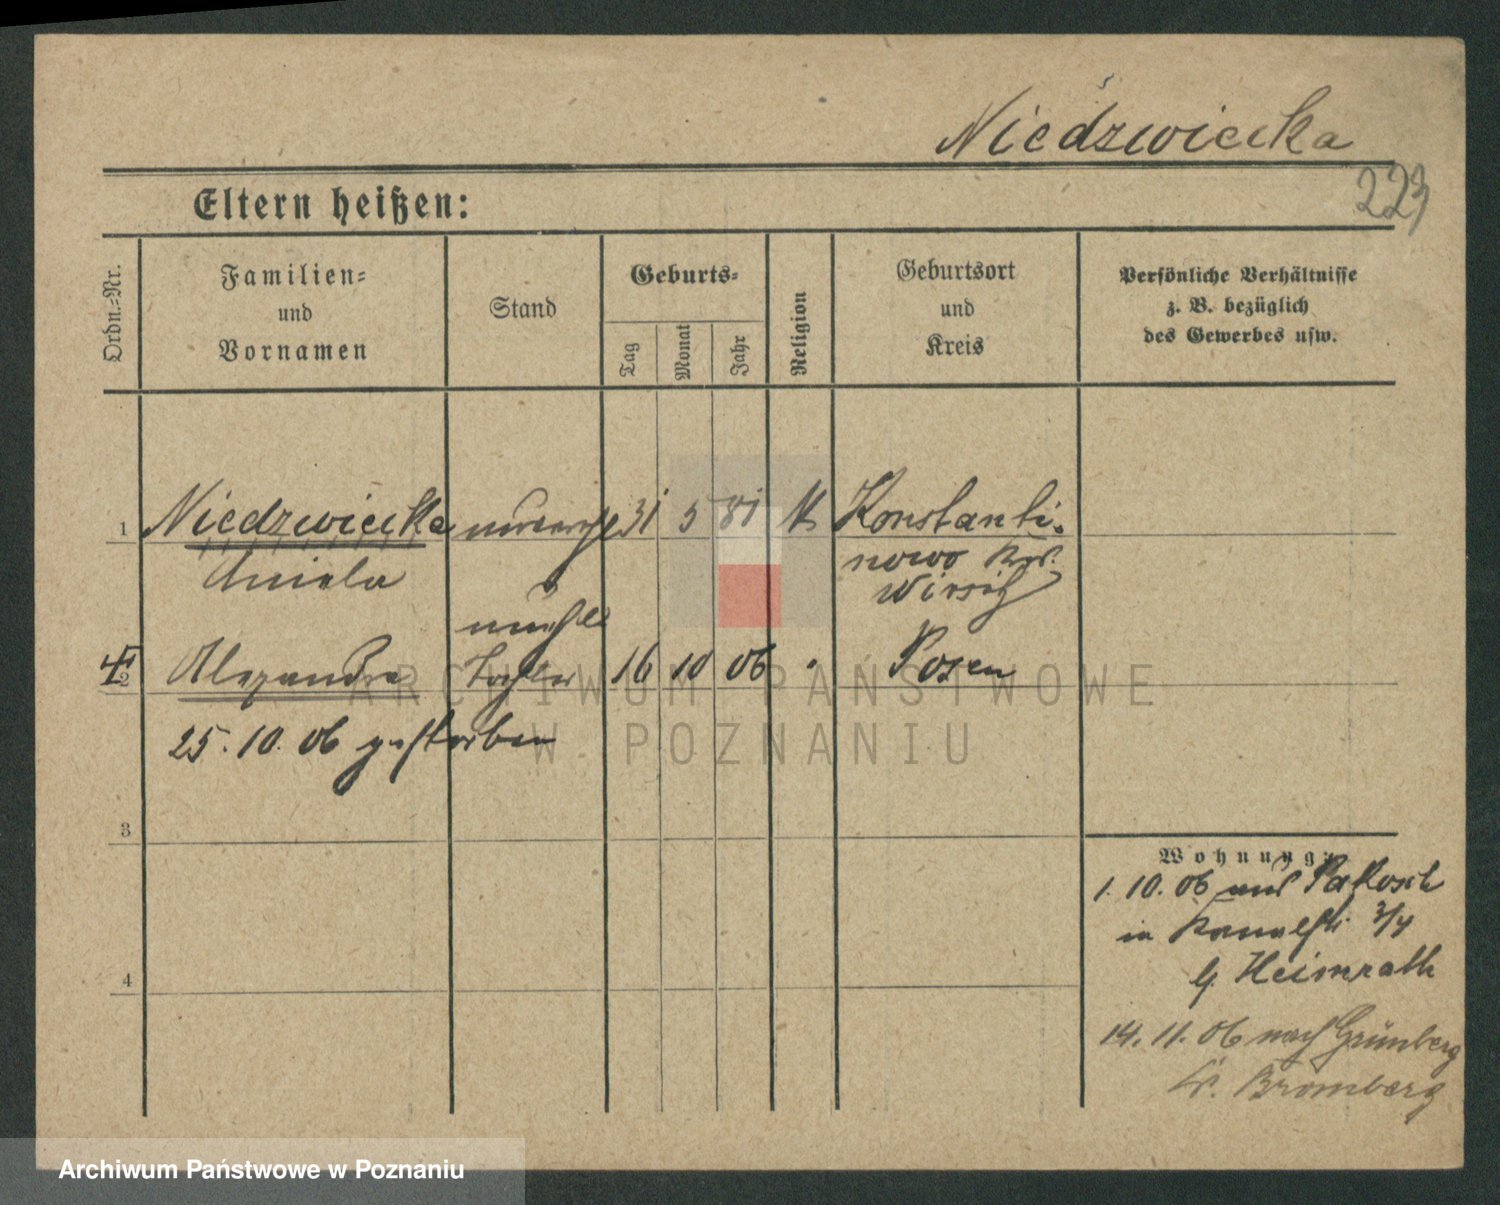 Niedzwiecka
223
Eltern heißen:
Ordn.=Nr.
Familien=
und
Vornamen
Stand
Geburts=
Tag
Monat
Jahr
Religion
Geburtsort
und
Kreis
Persönliche Verhältnisse
z. B. bezüglich
des Gewerbes usw.
1 Niedzwiecka unverehl 31 5 81 K Konstanti=
nowo Kr.
Aniela Wirsitz
unehel
2 Alexandra Tochter 16 10 06 Posen
25. 10. 06 gestorben
3
Wohnung:
1. 10. 06 aus Pakosch
in Kanalstr. 3/4
b/ Heimrath
4
14. 11. 06 nach Grünberg
Kr. Bromberg
ARCHIWUM PAŃSTWOWE
W POZNANIU
Archiwum Państwowe w Poznaniu